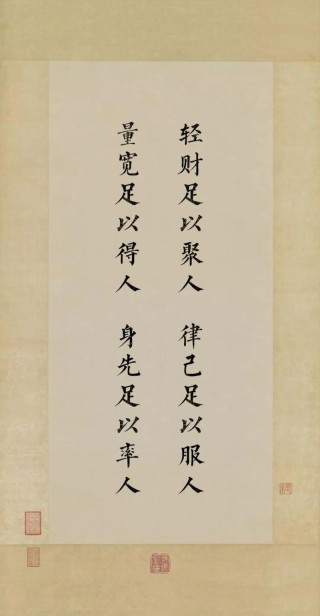 轻财足以聚人 律己足以服人
量宽足以得人 身先足以率人